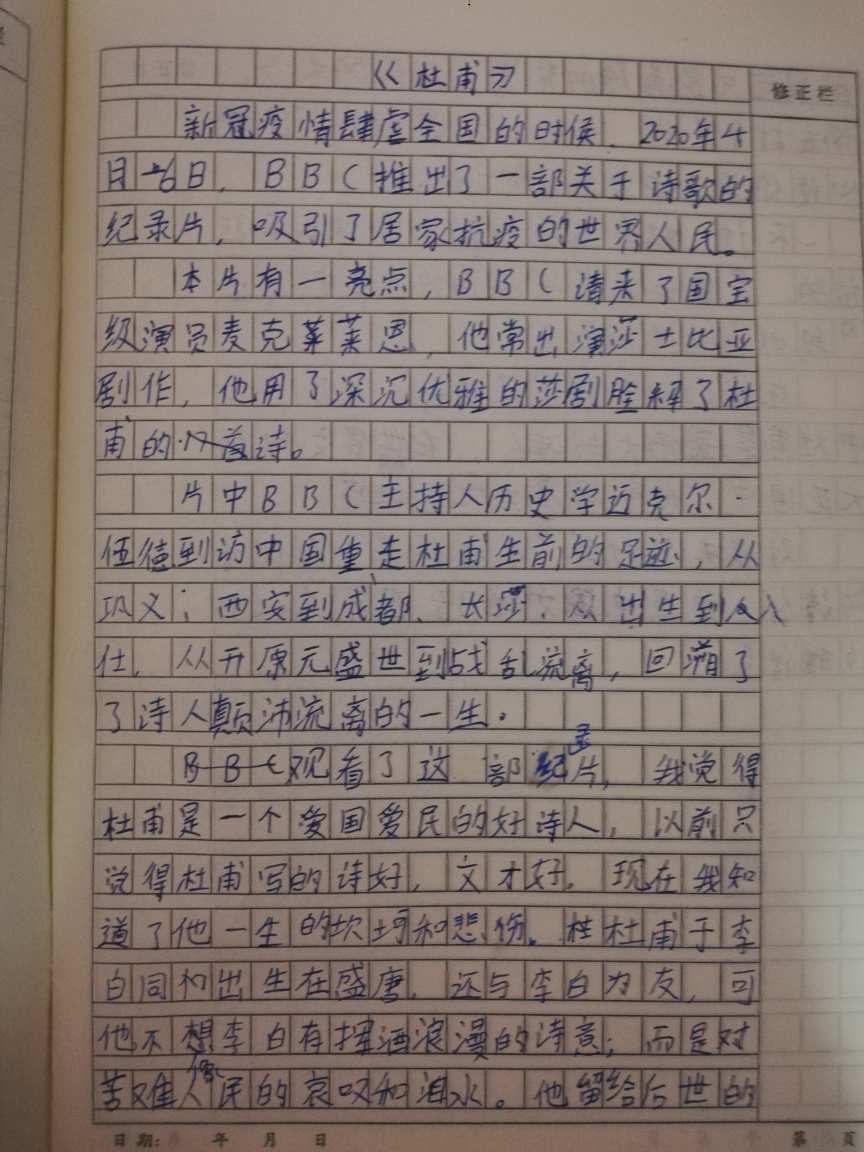 《杜甫》
修正栏
新冠疫情肆虐全国的时候，2020年4
月6日，BBC推出了一部关于诗歌的
纪录片，吸引了居家抗疫的世界人民。
本片有一亮点，BBC请来了国宝
级演员麦克莱莱恩，他常出演莎士比亚
剧作，他用了深沉优雅的莎剧腔绎了杜
甫的首诗。
片中BBC主持人历史学迈克尔·
伍德到访中国重走杜甫生前的足迹，从
巩义；西安到成都、长沙，从出生到入
仕，从开原元盛世到战乱流离，回溯了
了诗人颠沛流离的一生。
BBC观看了这部纪录片，我觉得
杜甫是一个爱国爱民的好诗人，以前只
觉得杜甫写的诗好，文才好，现在我知
道了他一生的坎坷和悲伤。杜甫于李
白同和出生在盛唐，还与李白为友，可
他不想李白有挥洒浪漫的诗意；而是对
像
苦难人民的哀叹和泪水。他留给后世的
日期： 年 月 日
第 页